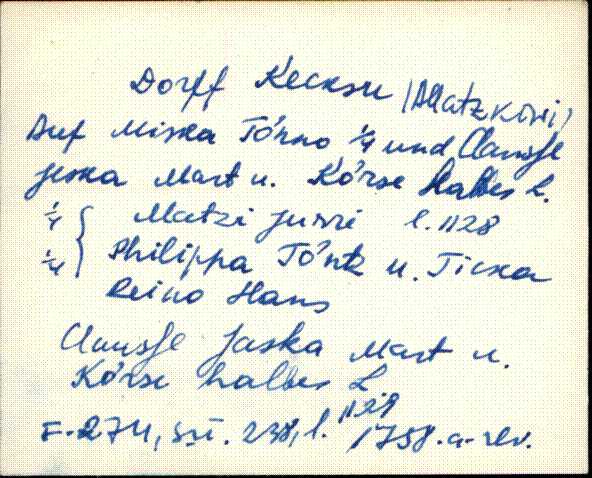 Dorff Kecksu (Matzkivi)
Auf Miska Tõnno 1/4 und Clausse
Jeska Mart u. Kõrse halbes L.
1/4 Matzi Jurri l. 1128
1/4 Philippa Tõntz u. Ticka
Reino Hans
Clausse Jaska Mart u.
Kõrse halbes L
F-274, sü. 238, l. 1129 1758. a. rlv.